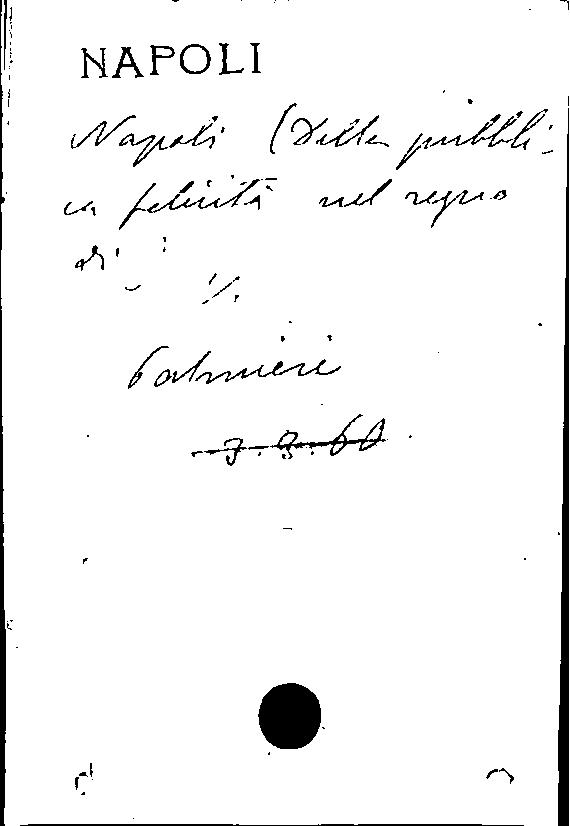 NAPOLI
Napoli (Della pubbli-
ca felicità nel regno
di
./.
Palmieri
7.8.60